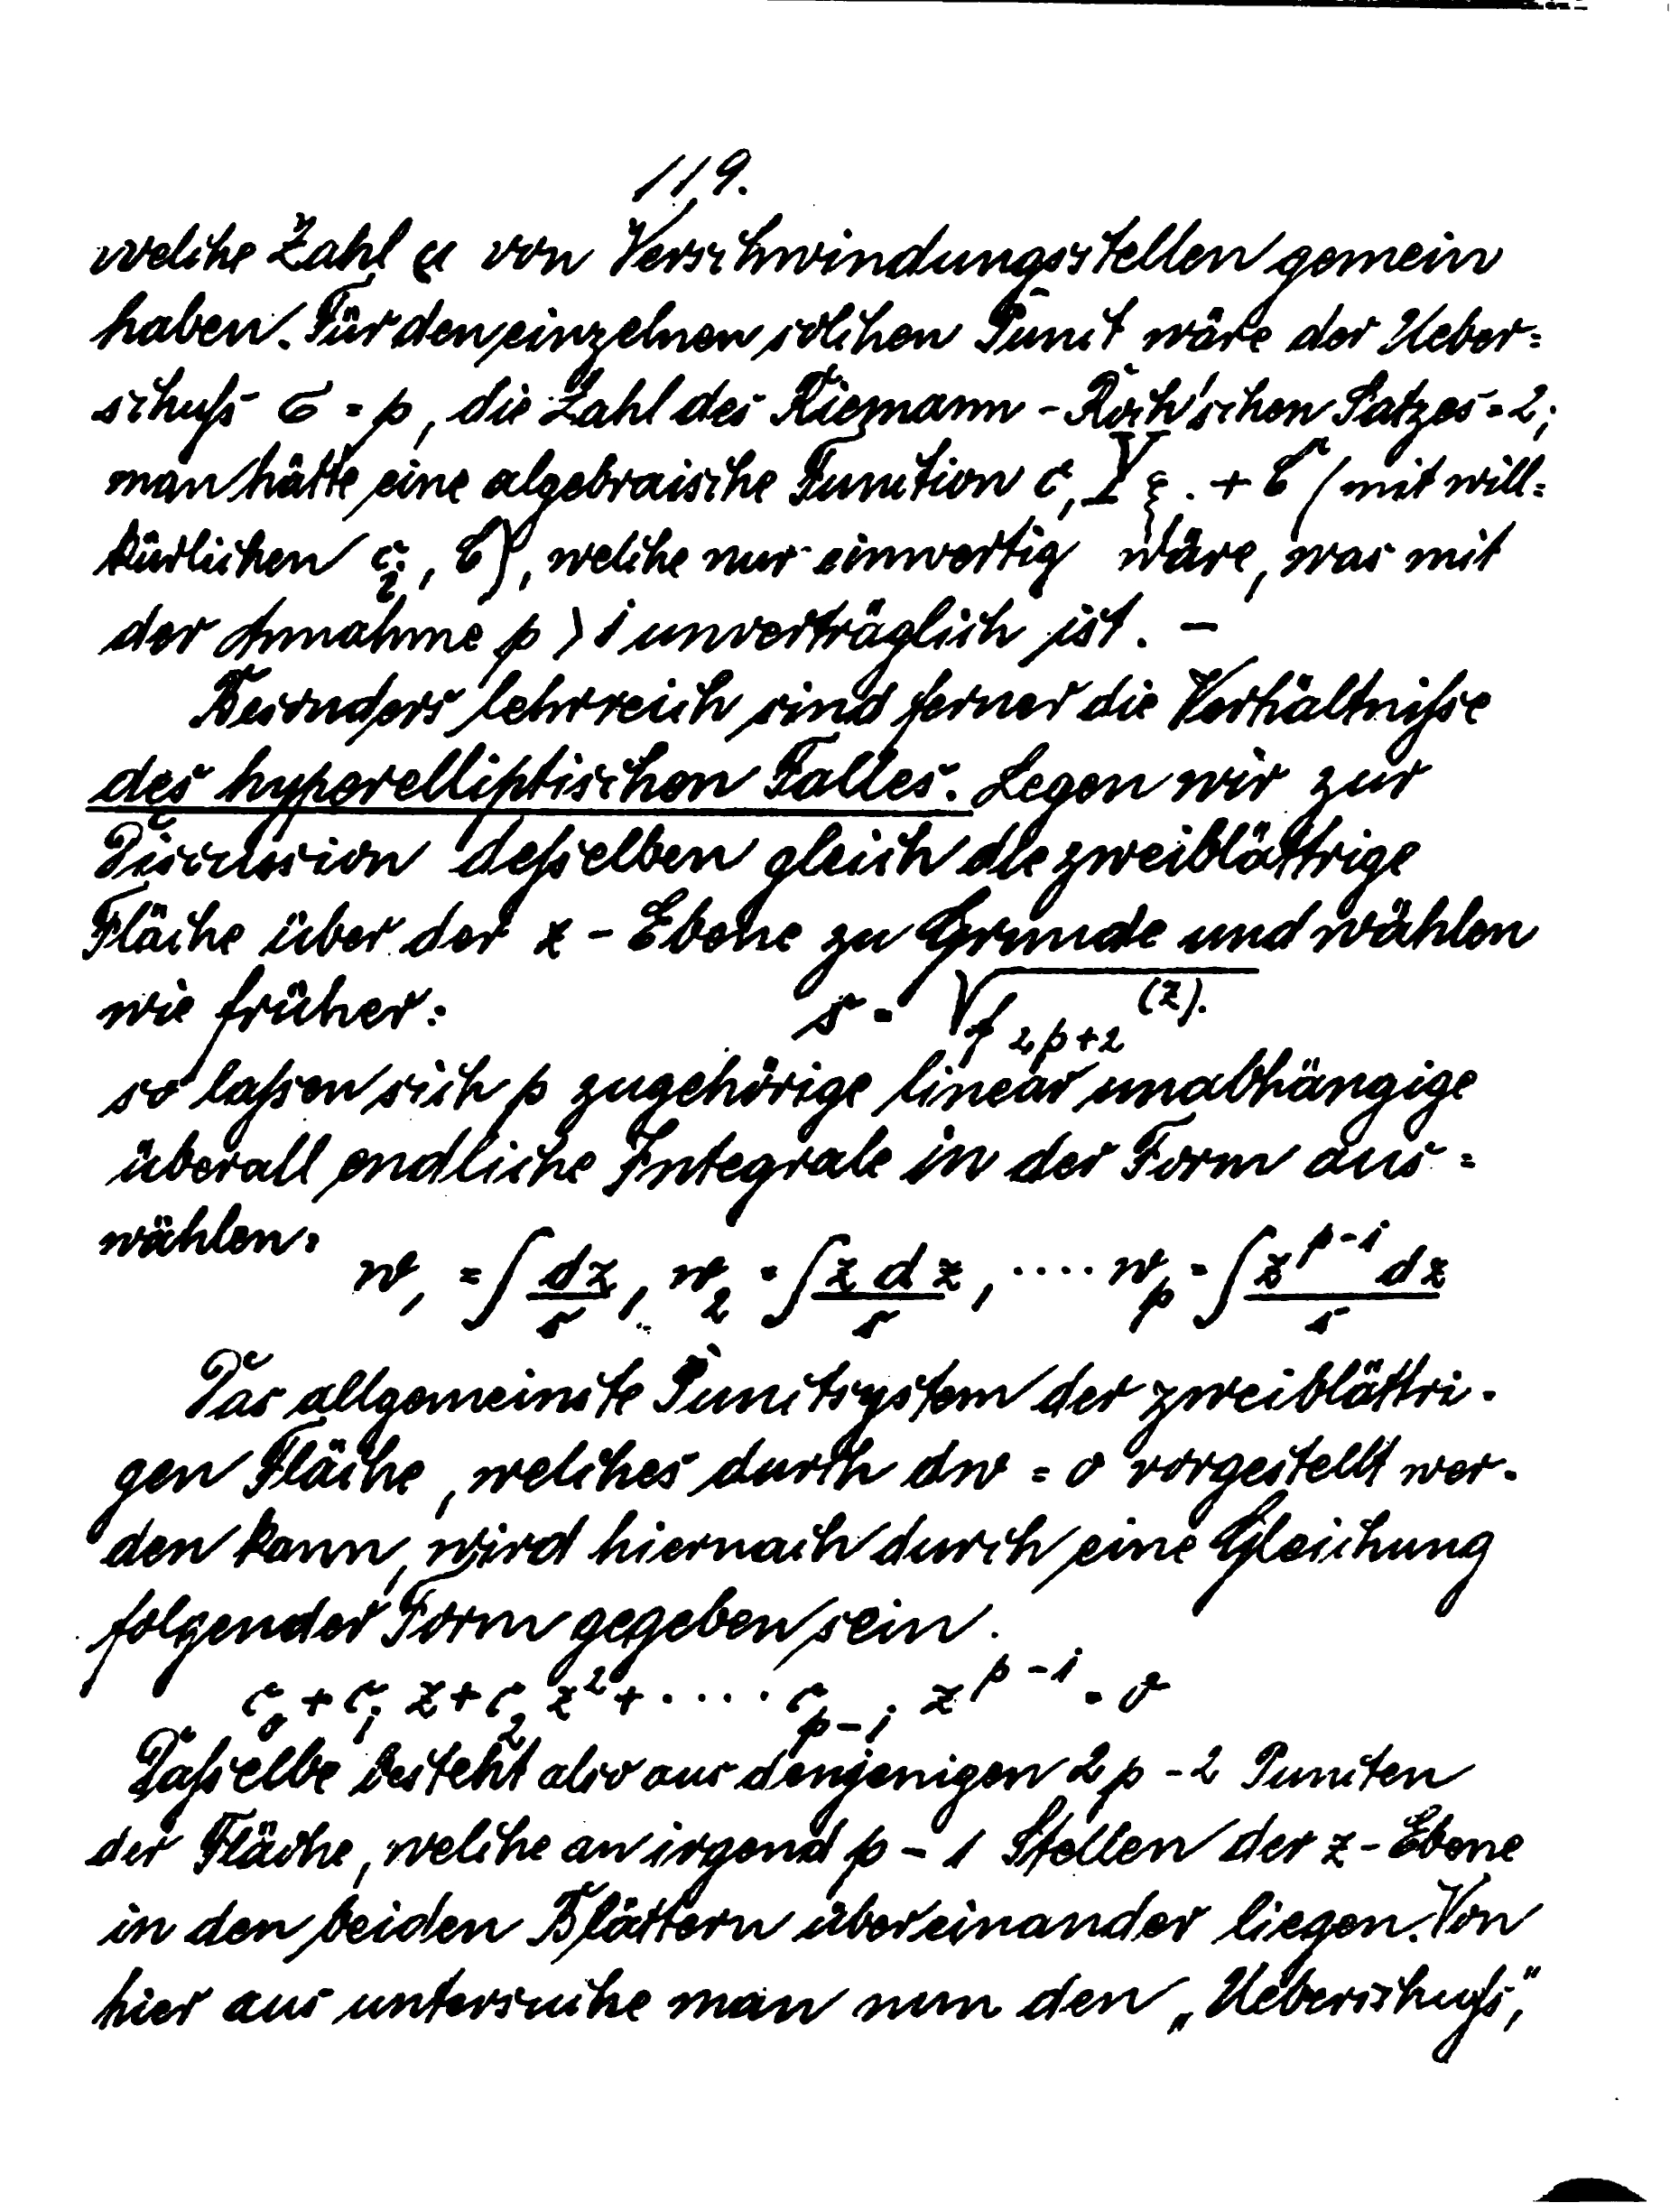 119.
welche Zahl μ von Verschwindungsstellen gemein
haben. Für den einzelnen solchen Punct wäre der Ueber=
schuß σ = p, die Zahl des Riemann-Roch'schen Satzes = 2;
man hätte eine algebraische Function c, Y ξ . + C (mit will=
kürlichen c, C), welche nur einwertig wäre, was mit
der Annahme p > 1 unverträglich ist. –
Besonders lehrreich sind ferner die Verhältniße
des hyperelliptischen Falles. Legen wir zur
Discussion deßelben gleich die zweiblättrige
Fläche über der z-Ebene zu Grunde und wählen
wie früher: s = √f₂ₚ₊₂(z).
so laßen sich p zugehörige linear unabhängige
überall endliche Integrale in der Form aus=
wählen:
w₁ = ∫ dz/s, w₂ = ∫ z dz/s, .... wₚ = ∫ z^{p-1} dz/s
Das allgemeinste Punctsystem der zweiblättri-
gen Fläche, welches durch dw = o vorgestellt wer-
den kann, wird hiernach durch eine Gleichung
folgender Form gegeben sein.
c₀ + c₁ z + c₂ z² + ..... cₚ₋₁ . z^{p-1} = o
Daßelbe besteht also aus denjenigen 2p-2 Puncten
der Fläche, welche an irgend p-1 Stellen der z-Ebene
in den beiden Blättern übereinander liegen. Von
hier aus untersuche man nun den „Ueberschuß",